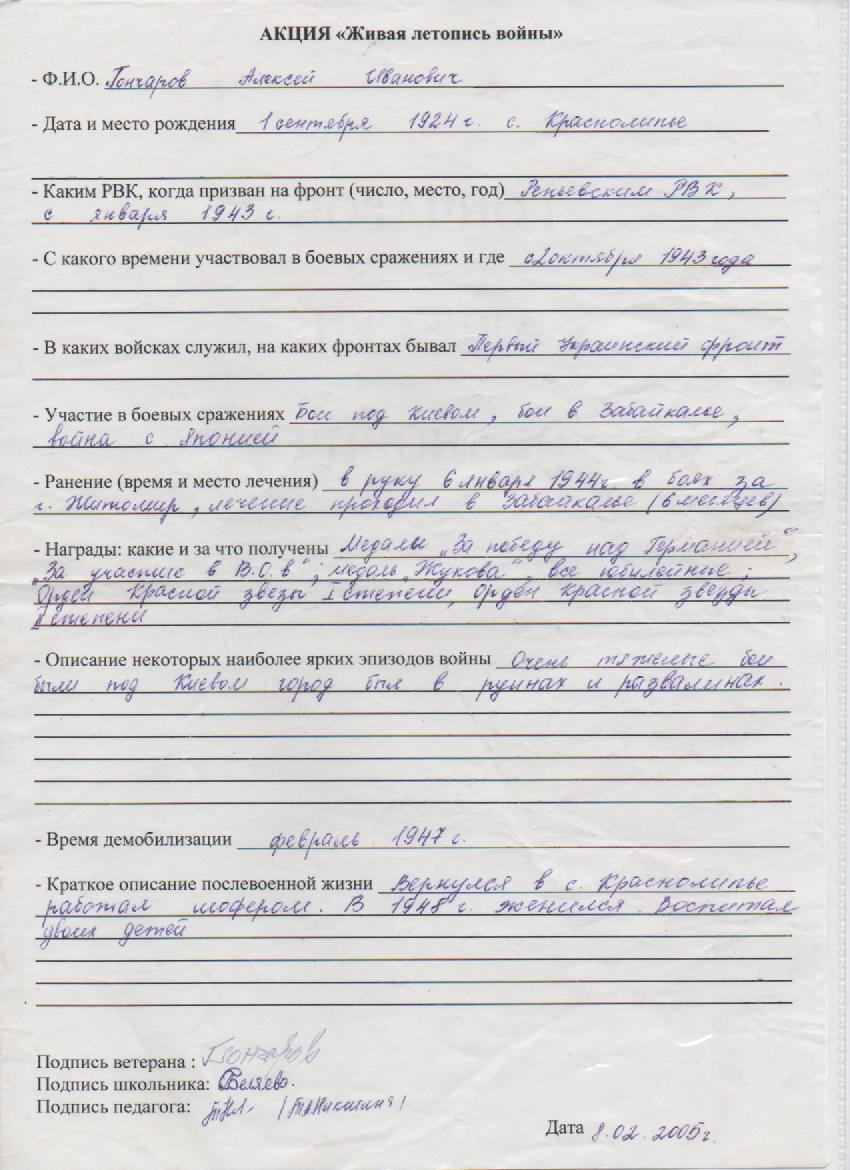 АКЦИЯ «Живая летопись войны»
- Ф.И.О. Гончаров Алексей Иванович
- Дата и место рождения 1 сентября 1924 г. с. Краснолипье
- Каким РВК, когда призван на фронт (число, место, год) Репьевским РВК,
с января 1943 г.
- С какого времени участвовал в боевых сражениях и где с 2 октября 1943 года
- В каких войсках служил, на каких фронтах бывал Первый Украинский фронт
- Участие в боевых сражениях Бои под Киевом, бои в Забайкалье,
война с Японией
- Ранение (время и место лечения) в руку 6 января 1944 г. в боях за
г. Житомир, лечение проходил в Забайкалье (6 месяцев)
- Награды: какие и за что получены Медали „За победу над Германией“,
„За участие в В.О.в“; медаль „Жукова“, все юбилейные;
Орден Красной звезы I степени, Орден Красной звезды
II степени
- Описание некоторых наиболее ярких эпизодов войны Очень тяжелые бои
были под Киевом город был в руинах и развалинах.
- Время демобилизации февраль 1947 г.
- Краткое описание послевоенной жизни Вернулся в с. Краснолипье
работал шофером. В 1948 г. женился. Воспитал
двоих детей
Подпись ветерана : Гончаров
Подпись школьника: Беляева.
Подпись педагога:
Дата 8.02.2005 г.